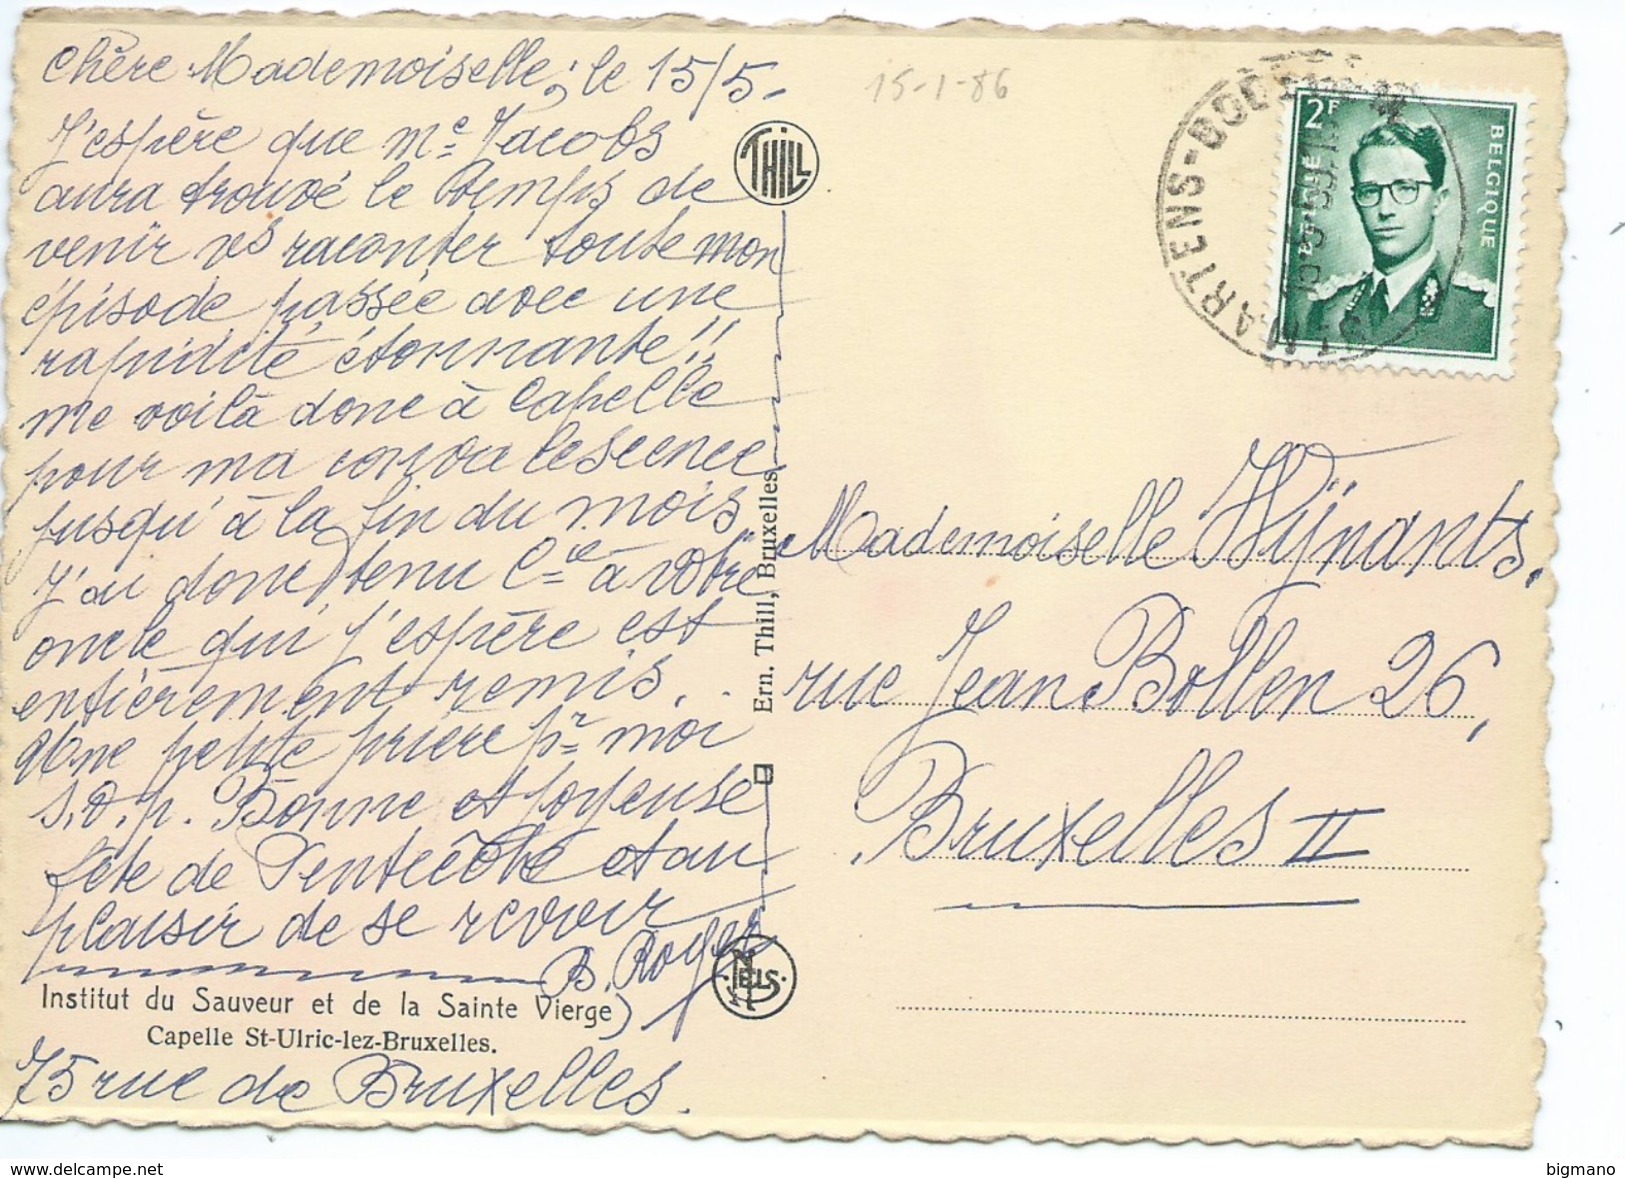 Chère Mademoiselle, le 15/5.
J'espère que Me Jacobs
aura trouvé le temps de
venir vs raconter toute mon
épisode passée avec une
rapidité étonnante!!
me voilà donc à Capelle
pour ma convalescence
jusqu'à la fin du mois.
J'ai donc tenu Cie à votre
oncle qui j'espère est
entièrement remis.
Une petite prière pr moi
s.v.p. Bonne et joyeuse
fête de Pentecôte et au
plaisir de se revoir
B. Royer
Institut du Sauveur et de la Sainte Vierge
Capelle St-Ulric-lez-Bruxelles.
75 rue de Bruxelles.
THILL
Ern. Thill, Bruxelles
NELS
15-1-86
2F
BELGIQUE
BELGIË
Mademoiselle Wÿnants,
rue Jean Bollen 26,
Bruxelles II
bigmano